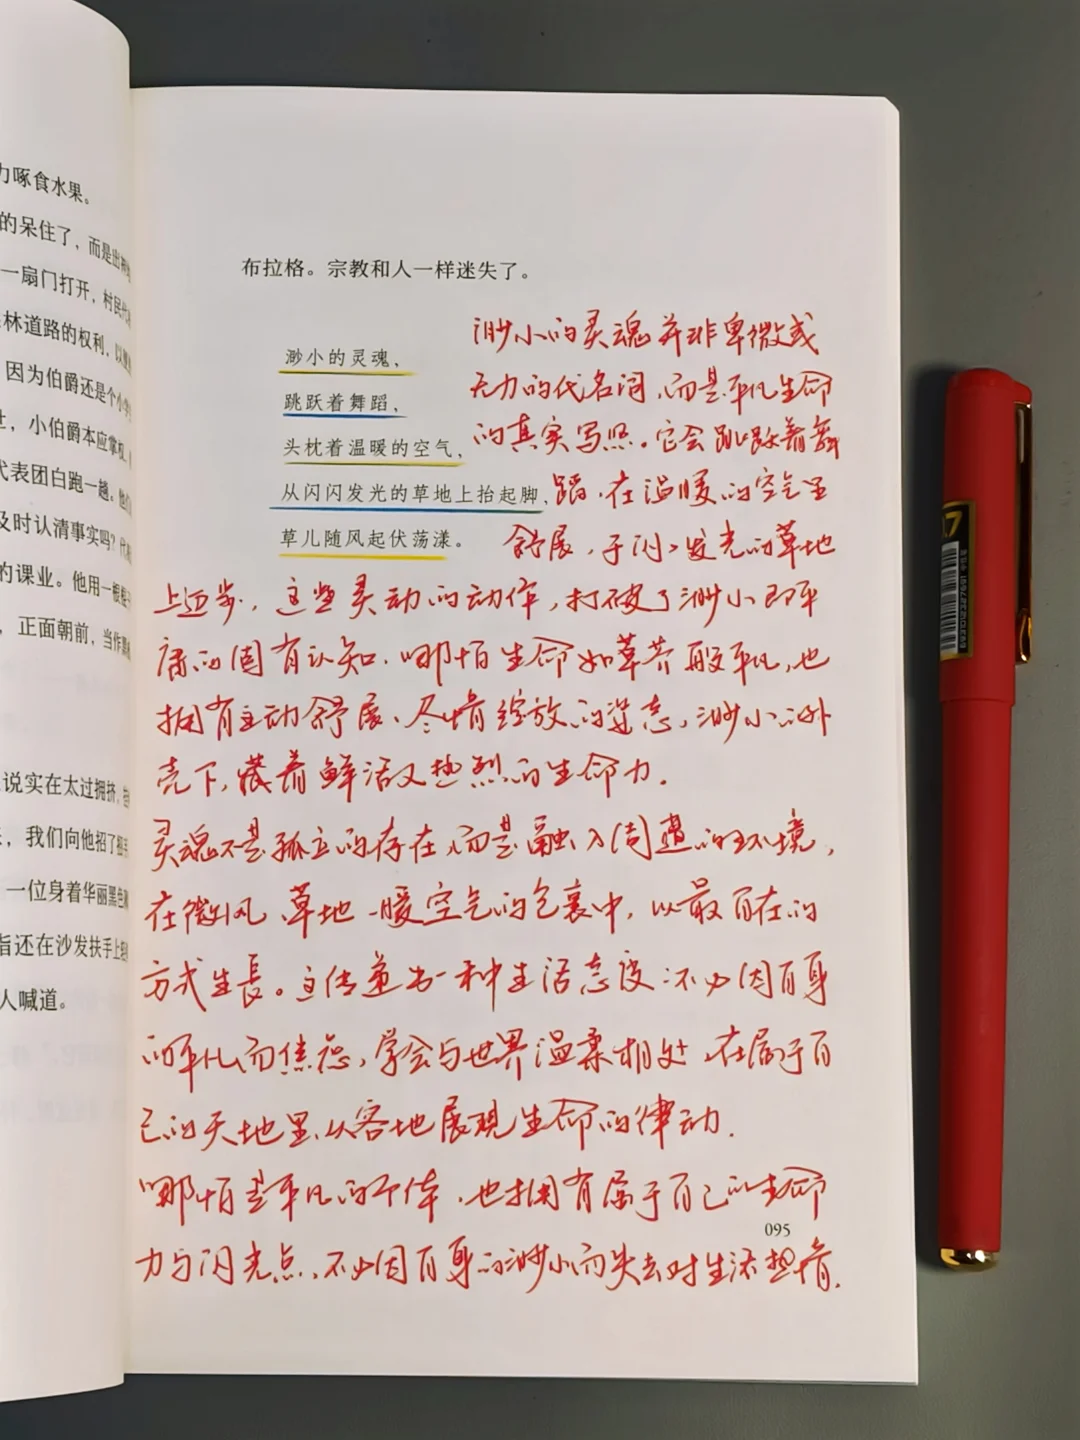 力啄食水果。
的呆住了，而是出神地
一扇门打开，村民代
林道路的权利，以
因为伯爵还是个小学
，小伯爵本应掌权，
代表团白跑一趟。他们
及时认清事实吗？代
的课业。他用一根棍子
，正面朝前，当作
说实在太过拥挤，
，我们向他招了招手
一位身着华丽黑色
指还在沙发扶手上
人喊道。
布拉格。宗教和人一样迷失了。
渺小的灵魂，
跳跃着舞蹈，
头枕着温暖的空气，
从闪闪发光的草地上抬起脚，
草儿随风起伏荡漾。
渺小的灵魂并非卑微或
无力的代名词，而是平凡生命
的真实写照。它会跳跃着舞
蹈，在温暖的空气里
舒展，于闪闪发光的草地
上迈步，这些灵动的动作，打破了渺小即平
庸的固有认知，哪怕生命如草芥般平凡，也
拥有主动舒展、尽情绽放的姿态，渺小的外
壳下，藏着鲜活又热烈的生命力。
灵魂不是孤立的存在，而是融入周遭的环境，
在微风、草地、暖空气的包裹中，以最自在的
方式生長。它传递出一种生活态度：不必因自身
的平凡而焦虑，学会与世界温柔相处，在属于自
己的天地里，从容地展現生命的律动。
哪怕是平凡的个体，也拥有属于自己的生命
力与闪光点，不必因自身的渺小而失去对生活热情。
095
17